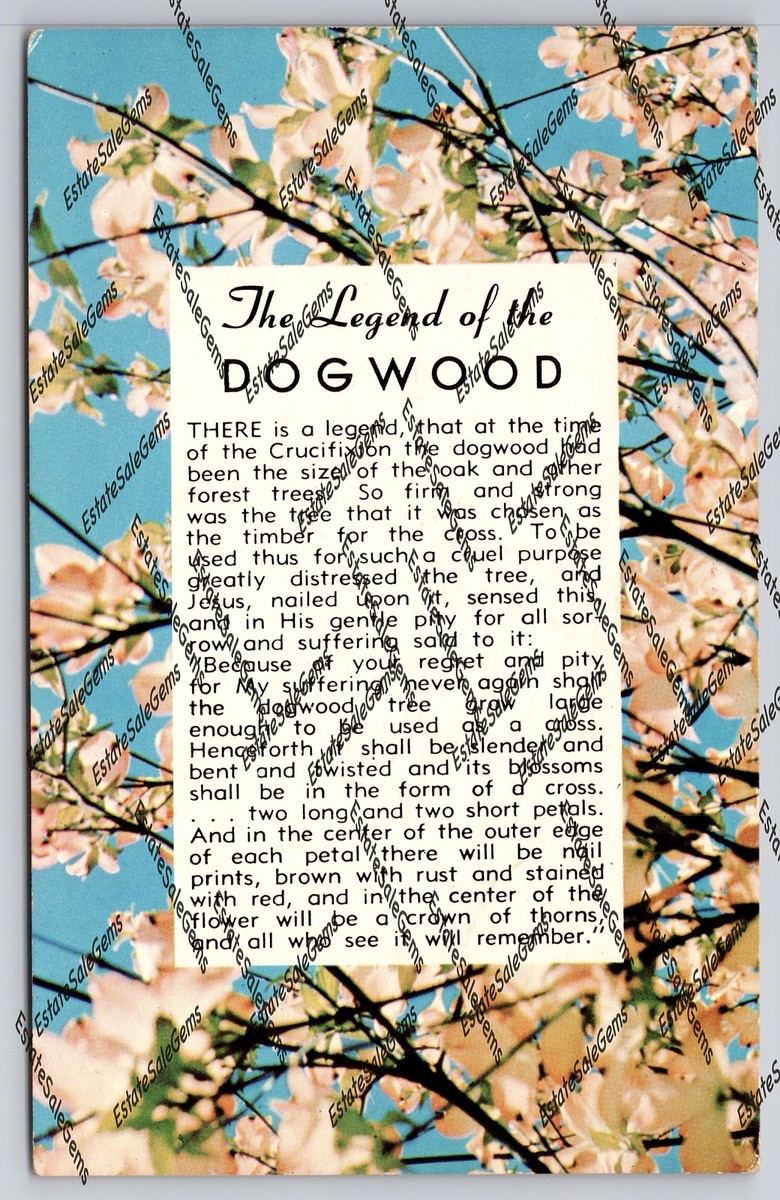 The Legend of the
DOGWOOD
THERE is a legend, that at the time
of the Crucifixion the dogwood had
been the size of the oak and other
forest trees. So firm and strong
was the tree that it was chosen as
the timber for the cross. To be
used thus for such a cruel purpose
greatly distressed the tree, and
Jesus, nailed upon it, sensed this,
and in His gentle pity for all sor-
row and suffering said to it:
"Because of your regret and pity
for My suffering never again shall
the dogwood tree grow large
enough to be used as a cross.
Henceforth it shall be slender and
bent and twisted and its blossoms
shall be in the form of a cross.
. . . two long and two short petals.
And in the center of the outer edge
of each petal there will be nail
prints, brown with rust and stained
with red, and in the center of the
flower will be a crown of thorns,
and all who see it will remember."
EstateSaleGems